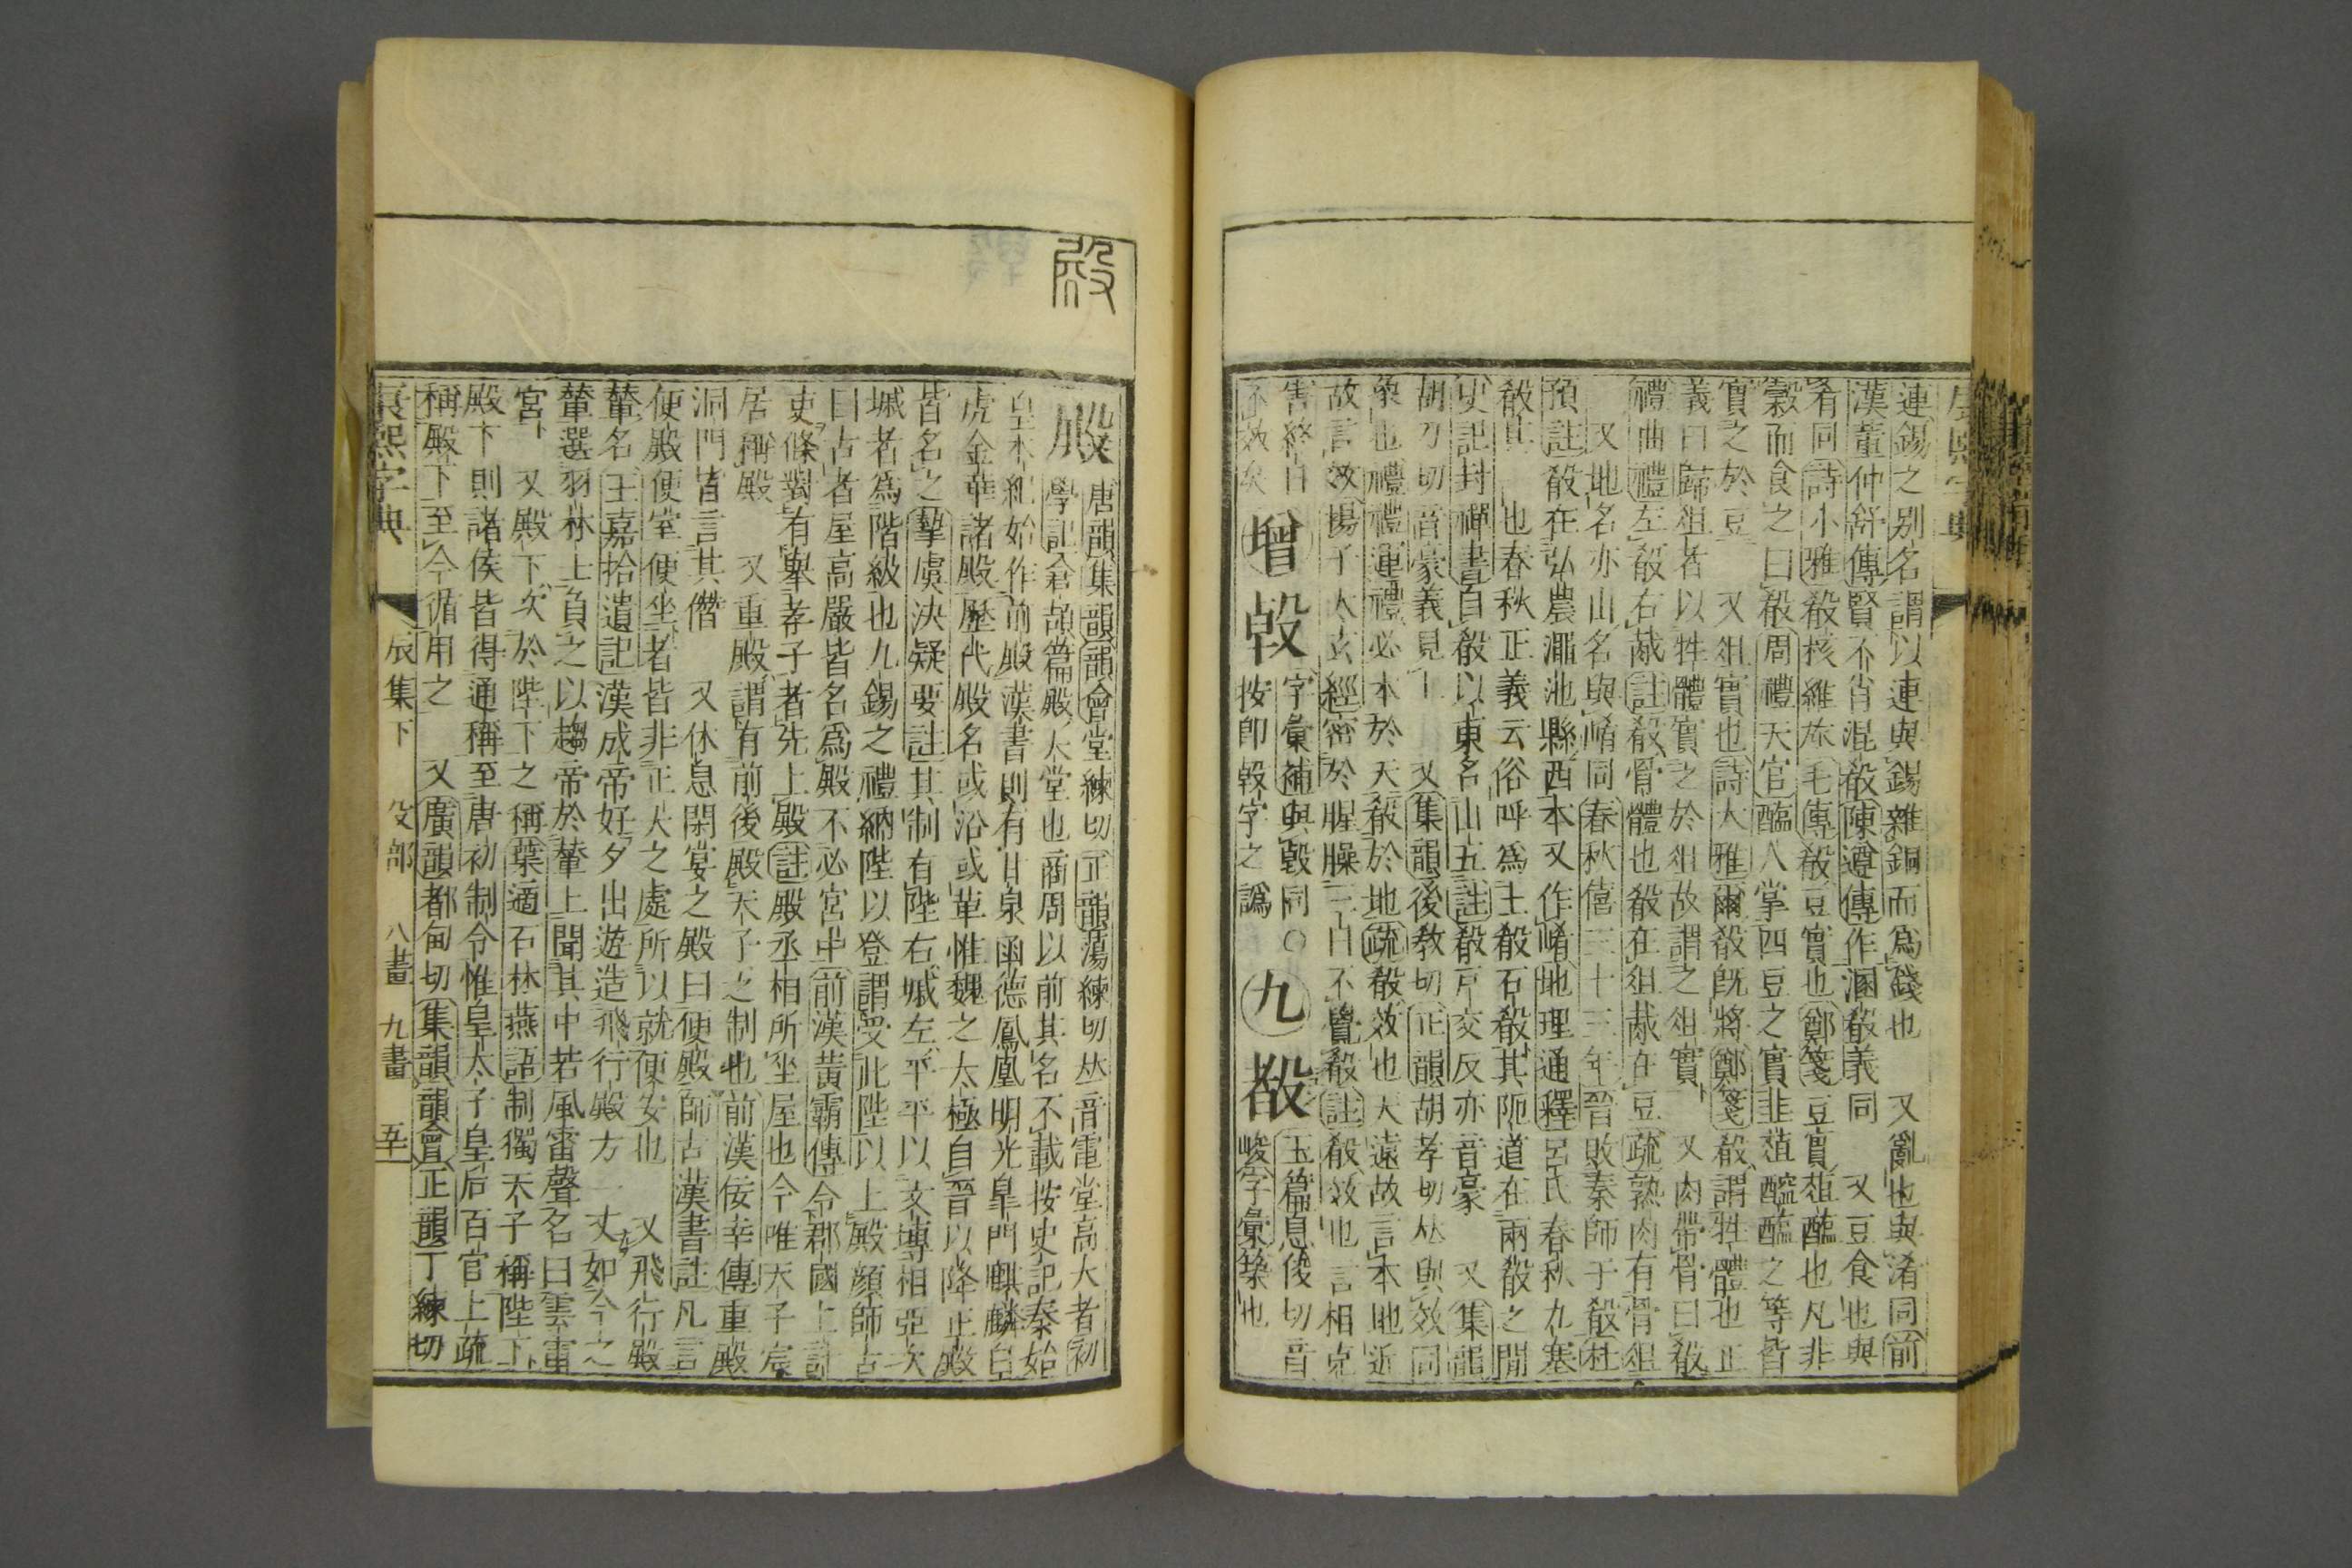 連錫之别名謂以連與錫雜銅而爲錢也　又亂也與淆同前
漢董仲舒傳賢不肖混殽陳遵傳作溷殽義同　又豆食也與
肴同詩小雅殽核維旅毛傳殽豆實也鄭箋豆實葅醢也凡非
穀而食之曰殽周禮天官醢人掌四豆之實韭葅醓醢之等皆
實之於豆　又俎實也詩大雅爾殽旣將鄭箋殽謂牲體也正
義曰歸俎者以牲體實之於俎故謂之俎實　又肉帶骨曰殽
禮曲禮左殽右胾註殽骨體也殽在俎胾在豆疏熟肉有骨俎
又地名亦山名與崤同春秋僖三十三年晉敗秦師于殽杜
預註殽在弘農澠池縣西本又作崤地理通釋呂氏春秋九塞
殽其　也春秋正義云俗呼爲土殽石殽其阨道在兩殽之閒
史記封禪書自殽以東名山五註殽戸交反亦音豪　又集韻
胡刀切音豪義見上　又集韻後敎切正韻胡孝切𠀤與效同
象也禮禮運禮必本於天殽於地疏殽效也大遠故言本地近
故言效揚子太玄經密於腥臊三日不覺殽註殽效也言相克
害終日
不效矣
增
㲉
字彙補與㲉同○
按卽㲉字之譌
九
殽
玉篇息後切音
峻字彙築也
殿
殿
唐韻集韻韻會堂練切正韻蕩練切𠀤音電堂高大者初
學記倉頡篇殿大堂也商周以前其名不載按史記秦始
皇本紀始作前殿漢書則有甘泉函德鳳凰明光皐門麒麟白
虎金華諸殿歷代殿名或沿或革惟魏之太極自晉以降正殿
皆名之摯虞決疑要註其制有陛右墄左平平以文塼相亞次
墄者為階級也九錫之禮納陛以登謂受此陛以上殿顔師古
曰古者屋高嚴皆名爲殿不必宮中前漢黃霸傳令郡國上計
吏條對有舉孝子者先上殿註殿丞相所坐屋也今唯天子宸
居稱殿　又重殿謂有前後殿天子之制也前漢佞幸傳重殿
洞門皆言其僭　又休息閑宴之殿曰便殿師古漢書註凡言
便殿便室便坐者皆非正大之處所以就便安也　又飛行殿
輦名王嘉拾遺記漢成帝好夕出遊造飛行殿方一丈如今之
輦選羽林士負之以趨帝於輦上聞其中若風雷聲名曰雲雷
宮　又殿下次於陛下之稱葉適石林燕語制獨天子稱陛下
殿下則諸侯皆得通稱至唐初制令惟皇太子皇后百官上疏
稱殿下至今循用之　又廣韻都甸切集韻韻會正韻丁練切
康熙字典
辰集下
殳部
八畫
九畫